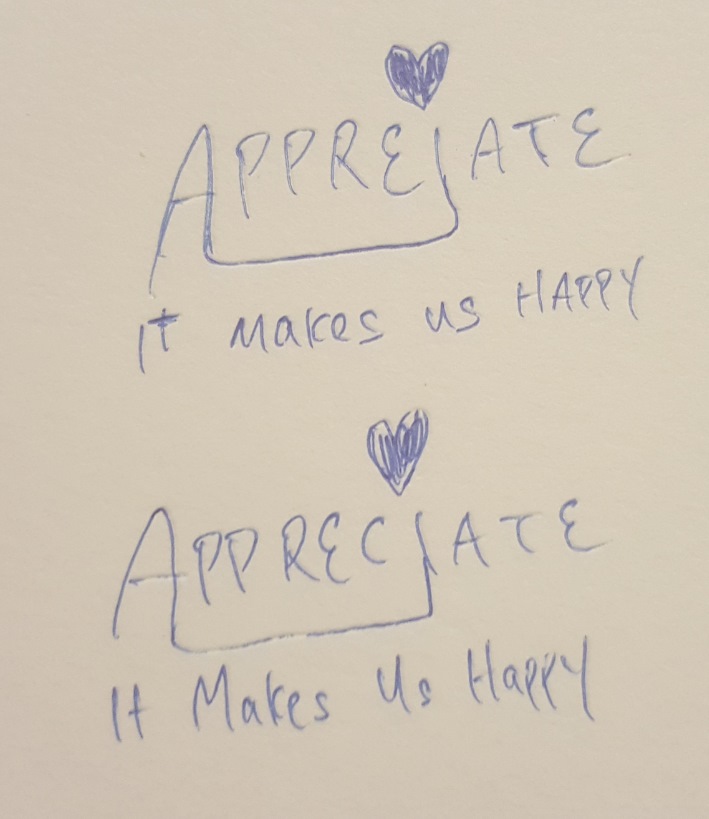 APPREIATE
It makes us HAPPY
APPRECIATE
It Makes Us Happy